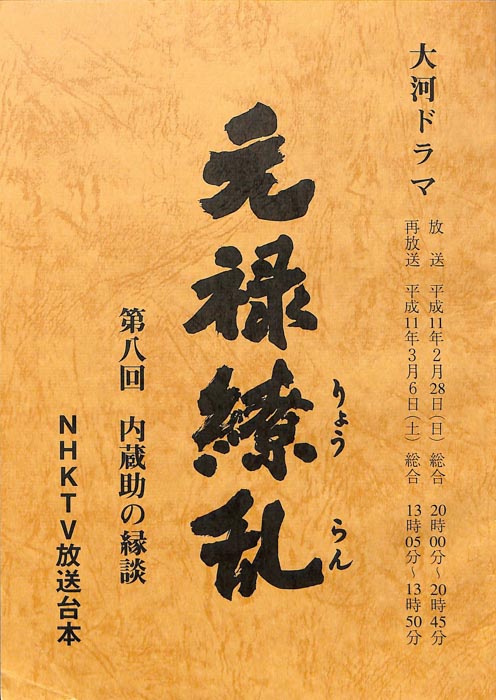 大河ドラマ
放　送　平成11年2月28日(日)　総合　20時00分～20時45分
再放送　平成11年3月6日(土)　総合　13時05分～13時50分
元禄繚乱
りょう　らん
第八回　内蔵助の縁談
NHKTV放送台本